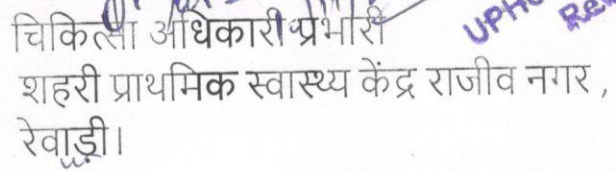 UPHC Re
चिकित्सा अधिकारी प्रभारी
शहरी प्राथमिक स्वास्थ्य केंद्र राजीव नगर ,
रेवाड़ी।